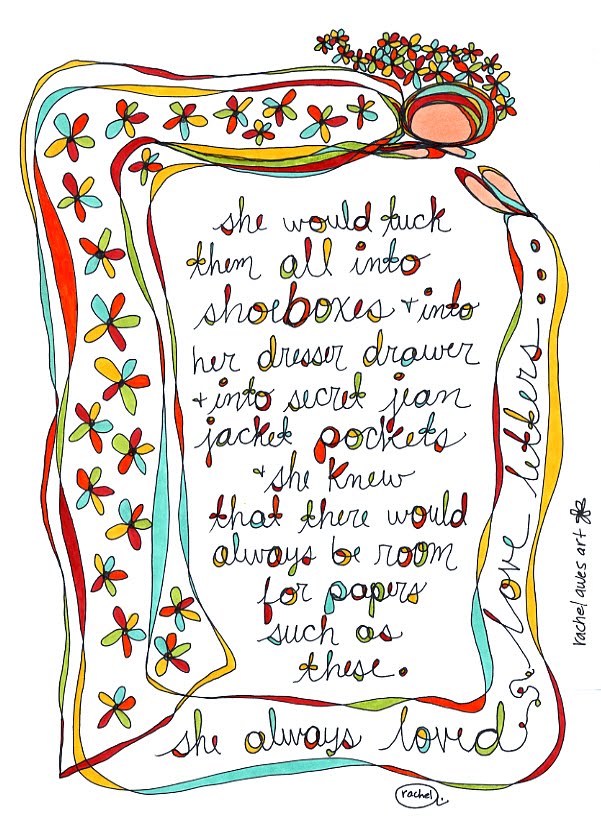 she would tuck
them all into
shoeboxes + into
her dresser drawer
+ into secret jean
jacket pockets
+ she knew
that there would
always be room
for papers
such as
these.
she always loved
love letters...
rachel awes art
rachel